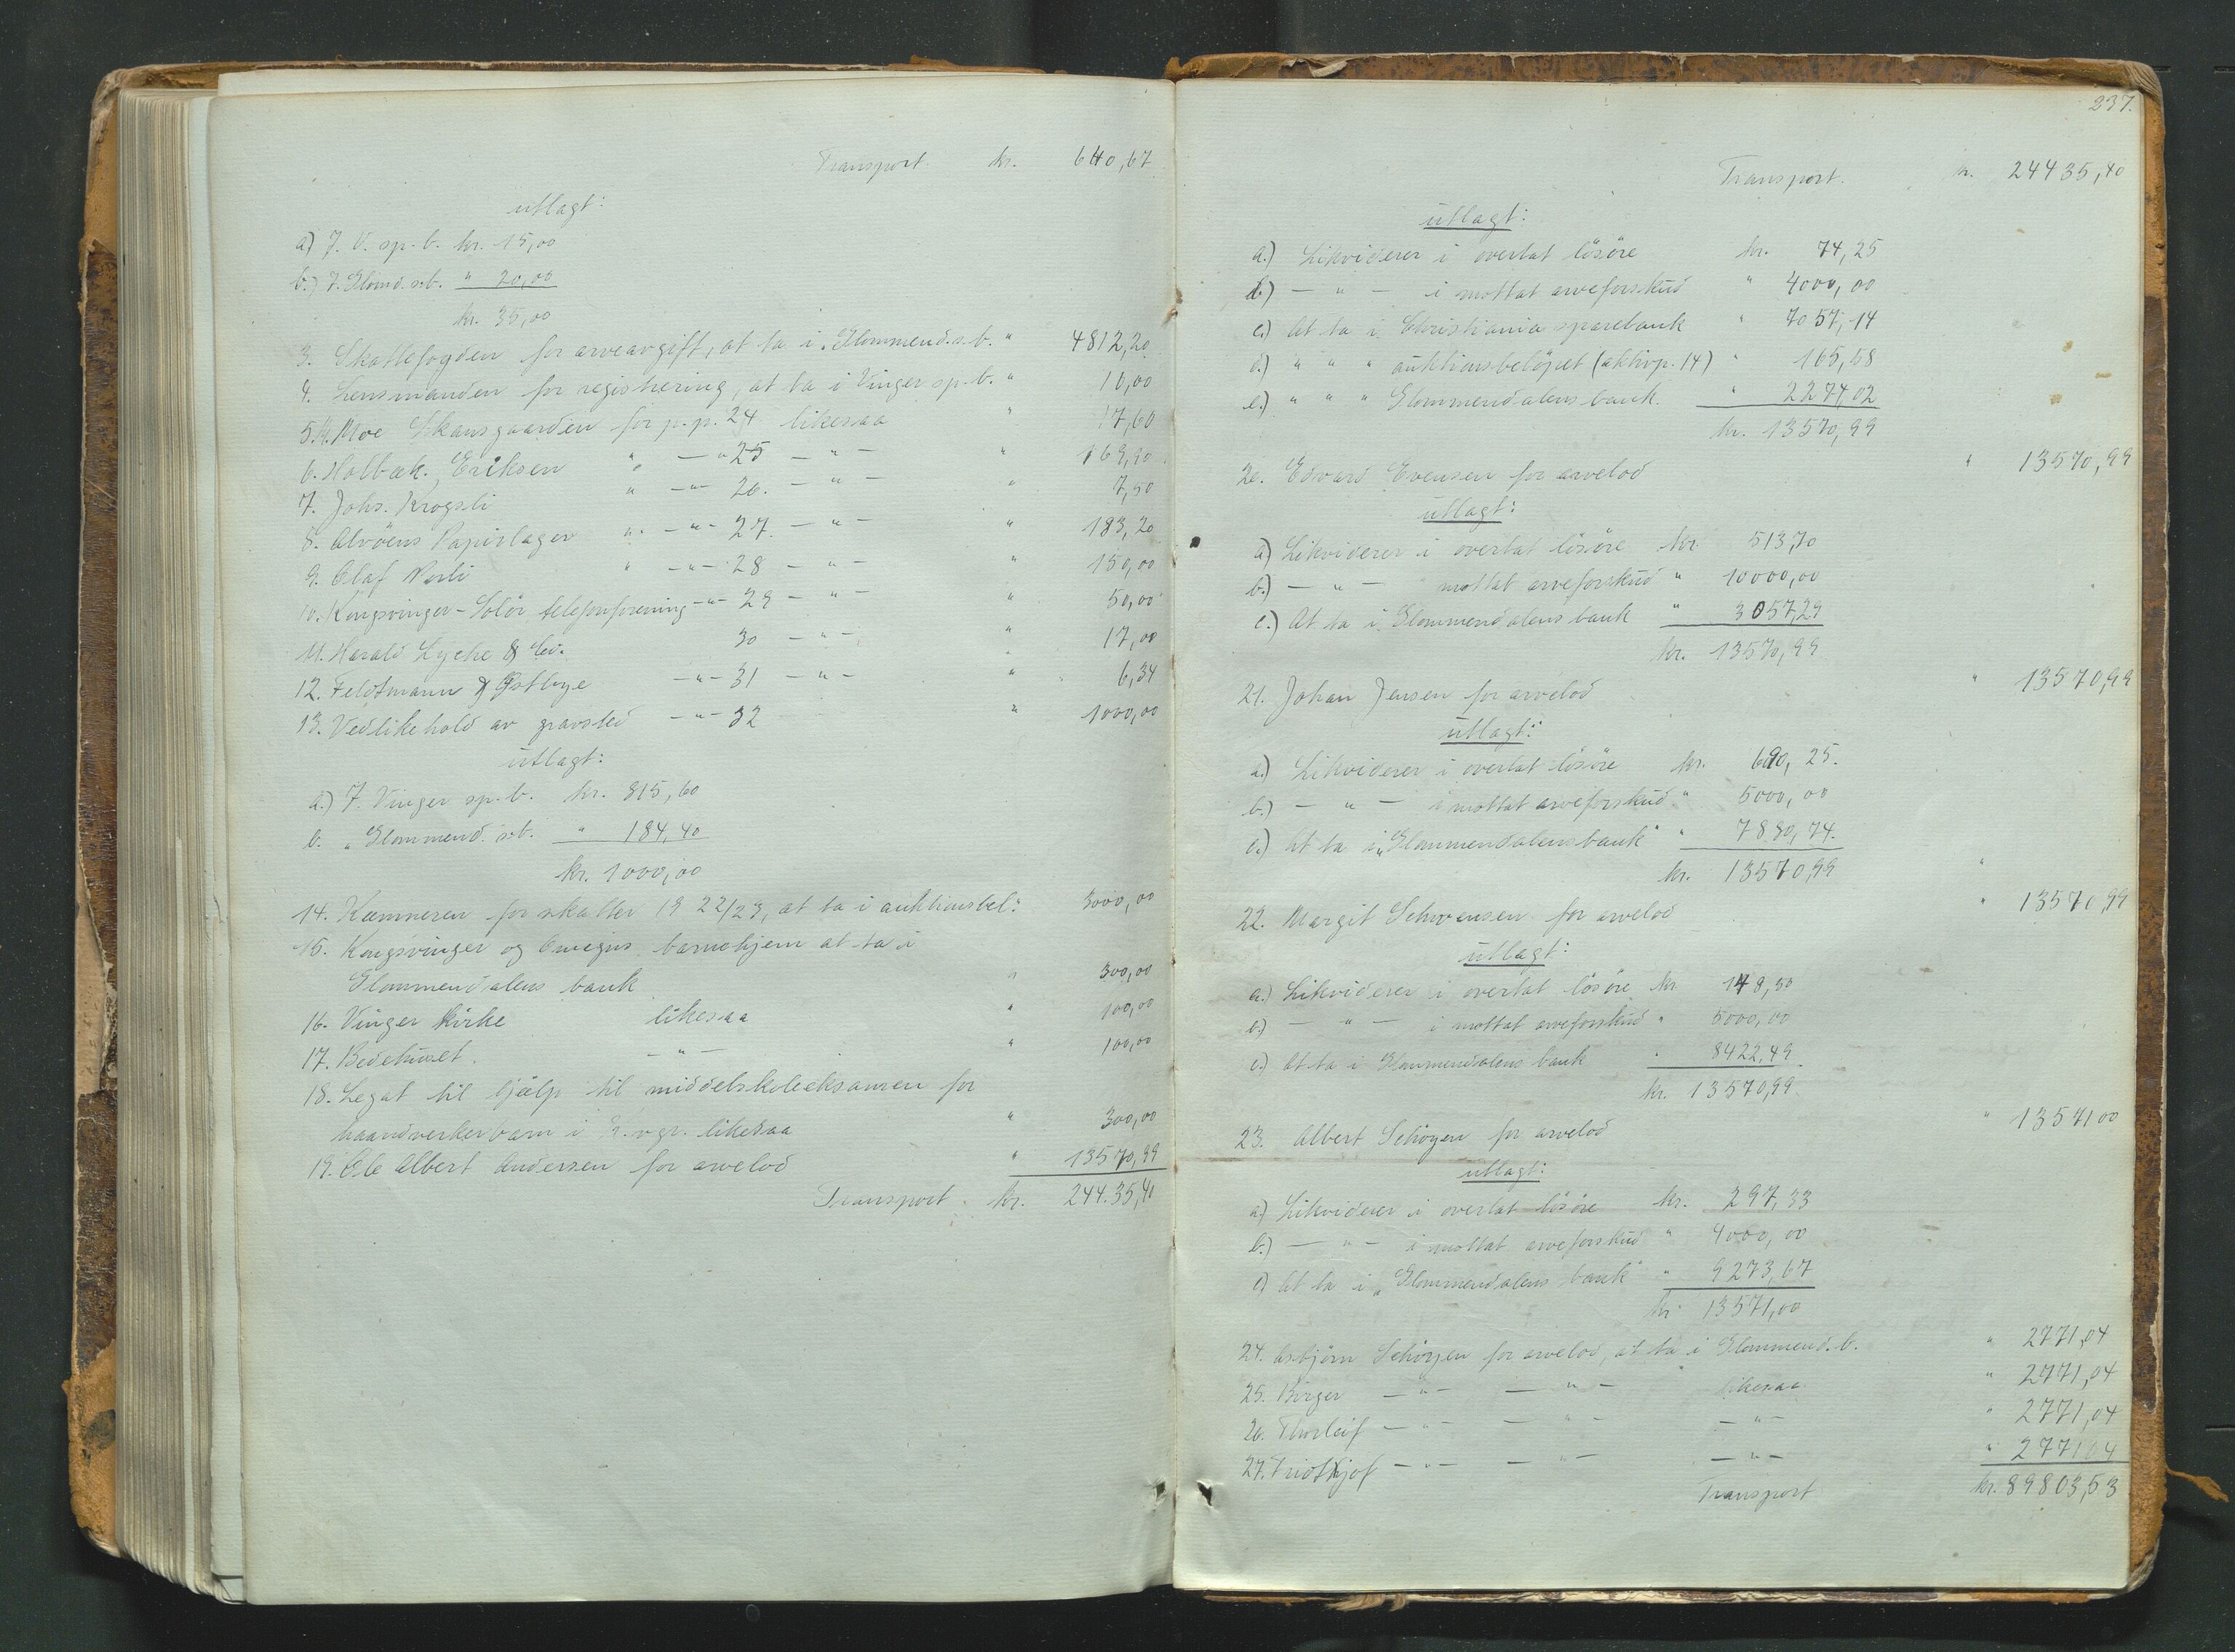 Transport. kr. 640,67
utlagt:
a) J. V. sp. b. kr. 15,00
b.) J. Glomd. s.b. " 20,00
kr. 35,00
3. Skattefogden for arveavgift, at ta i "Glommend. s. b. " 4812,20
4. Lensmanden for registrering, at ta i Vinger sp. b. " 10,00
5. M. Moe Skansgaarden for p. p. 24 likesaa " 17,60
6. Holbæk, Eriksen " — " 25 — " — " 169,90
7. Johs. Krogsli " — " — 26. — " — " 7,50
8. Alvøens Papirlager " — " — 27. — " — " 183,20
9. Olaf Norli " — " — 28 — " — " 150,00
10. Kongsvinger-Solør telefonforening — " — 29 — " — " 50,00
11. Harald Lyche & Co. 30 — " — " 17,00
12. Feldtmann & Østbye — " — 31 — " — " 6,34
13. Vedlikehold av gravsted — " — 32 " 1000,00
utlagt:
a.) J. Vinger sp. b. kr. 815,60
b. " Glommend. s.b. " 184,40
kr. 1000,00
14. Kæmneren for skatter 1922/23, at ta i auktionsbel: 3000,00
15. Kongsvinger og Omegns barnehjem at ta i
Glommendalens bank " 300,00
16. Vinger Kirke likesaa " 100,00
17. Bedehuset. — " — " 100,00
18. Legat til hjælp til middelskoleeksamen for
haandverkerbarn i K.vgr. likesaa " 300,00
19. Ole Albert Andersen for arvelod " 13570,99
Transport kr. 24435,40
237.
Transport. kr. 24435,40
utlagt:
a.) Likviderer i overtat løsøre kr. 74,25
b.) — " — i mottat arveforskud " 4000,00
c.) At ta i Christiania sparebank " 7057,14
d.) " " " auktionsbeløpet (aktivp. 14) " 165,58
e.) " " " Glommendalens bank. " 2274,02
kr. 13570,99
20. Edvard Evensen for arvelod " 13570,99
utlagt:
a) Likviderer i overtat løsøre kr. 513,70
b.) — " — mottat arveforskud " 10000,00
c.) At ta i Glommendalens bank " 3057,29
kr. 13570,99
21. Johan Jensen for arvelod " 13570,99
utlagt:
a.) Likviderer i overtat løsøre kr. 690,25.
b.) — " — i mottat arveforskud " 5000,00
c.) At ta i "Glommendalens bank" " 7880,74.
kr. 13570,99
22. Margit Schwensen for arvelod " 13570,99
utlagt:
a.) Likviderer i overtat løsøre kr 148,50
b.) — " — i mottat arveforskud " 5000,00
c.) At ta i Glommendalens bank " 8422,49
kr. 13570,99.
23. Albert Schøyen for arvelod " 13571,00
utlagt:
a) Likviderer i overtat løsøre kr. 297,33
b.) — " — i mottat arveforskud " 4000,00
c) At ta i "Glommendalens bank" " 9273,67
kr. 13571,00
24. Asbjørn Schøyen for arvelod, at ta i Glommend. b. " 2771,04
25. Birger — " — — " — likesaa " 2771,04
26. Thorleif — " — — " — — " — " 2771,04
27. Fridthjof — " — — " — — " — " 2771,04
Transport kr. 89803,53